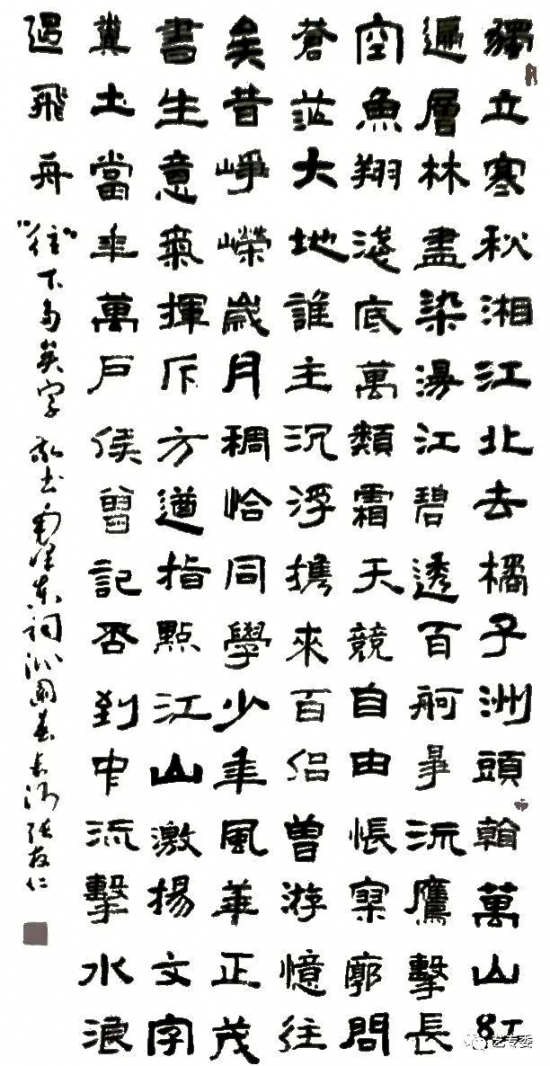 獨立寒秋湘江北去橘子洲頭看萬山紅
遍層林盡染漫江碧透百舸爭流鷹擊長
空魚翔淺底萬類霜天競自由悵寥廓問
蒼茫大地誰主沉浮攜來百侶曾游憶往
矣昔崢嶸歲月稠恰同學少年風華正茂
書生意氣揮斥方遒指點江山激揚文字
糞土當年萬戶侯曾記否到中流擊水浪
遏飛舟 "往"下多矣字 敬书毛泽东词沁園春长沙 张友仁
艺专委